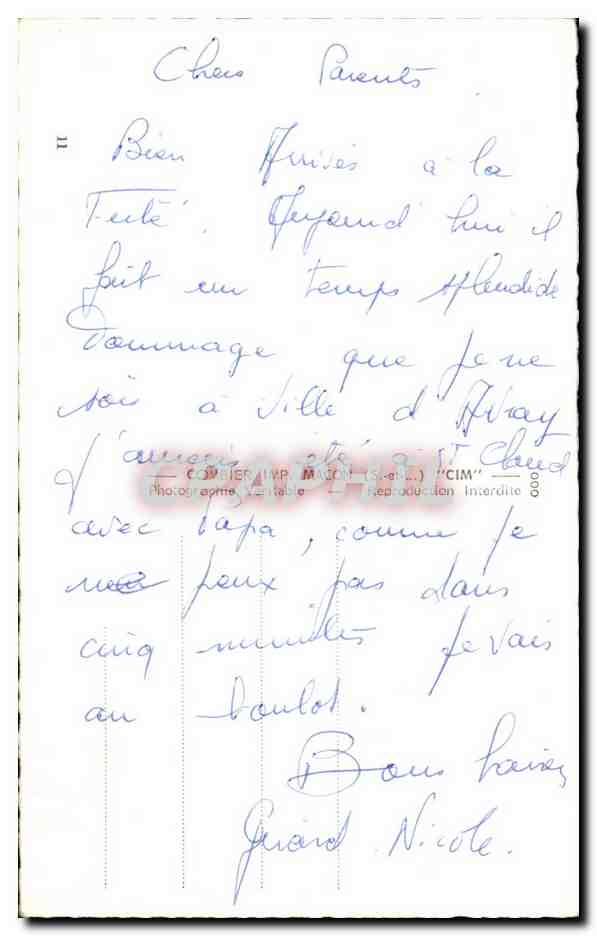 Chers Parents
11
Bien Arrivés à la
Ferté. Aujourd'hui il
fait un temps splendide
Dommage que je ne
sois à Ville d'Avray
J'aurais été à St Cloud
COMBIER IMP. MACON (S.-et-L.) "CIM"
Photographie Véritable Reproduction Interdite
000
avec Papa, comme je
ne peux pas dans
cinq minutes je vais
au boulot.
Bons baisers
Gérard Nicole.